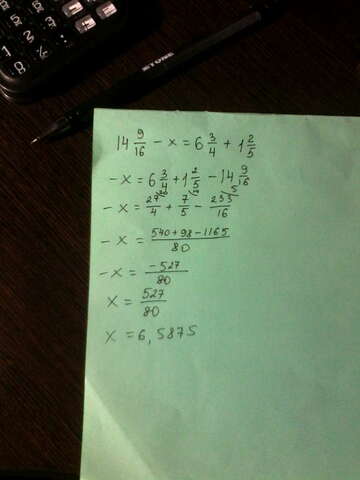 14 9/16 - x = 6 3/4 + 1 2/5
-x = 6 3/4 + 1 2/5 - 14 9/16
-x = 27/4 + 7/5 - 233/16
-x = 540+98-1165/80
-x = -527/80
x = 527/80
x = 6,5875